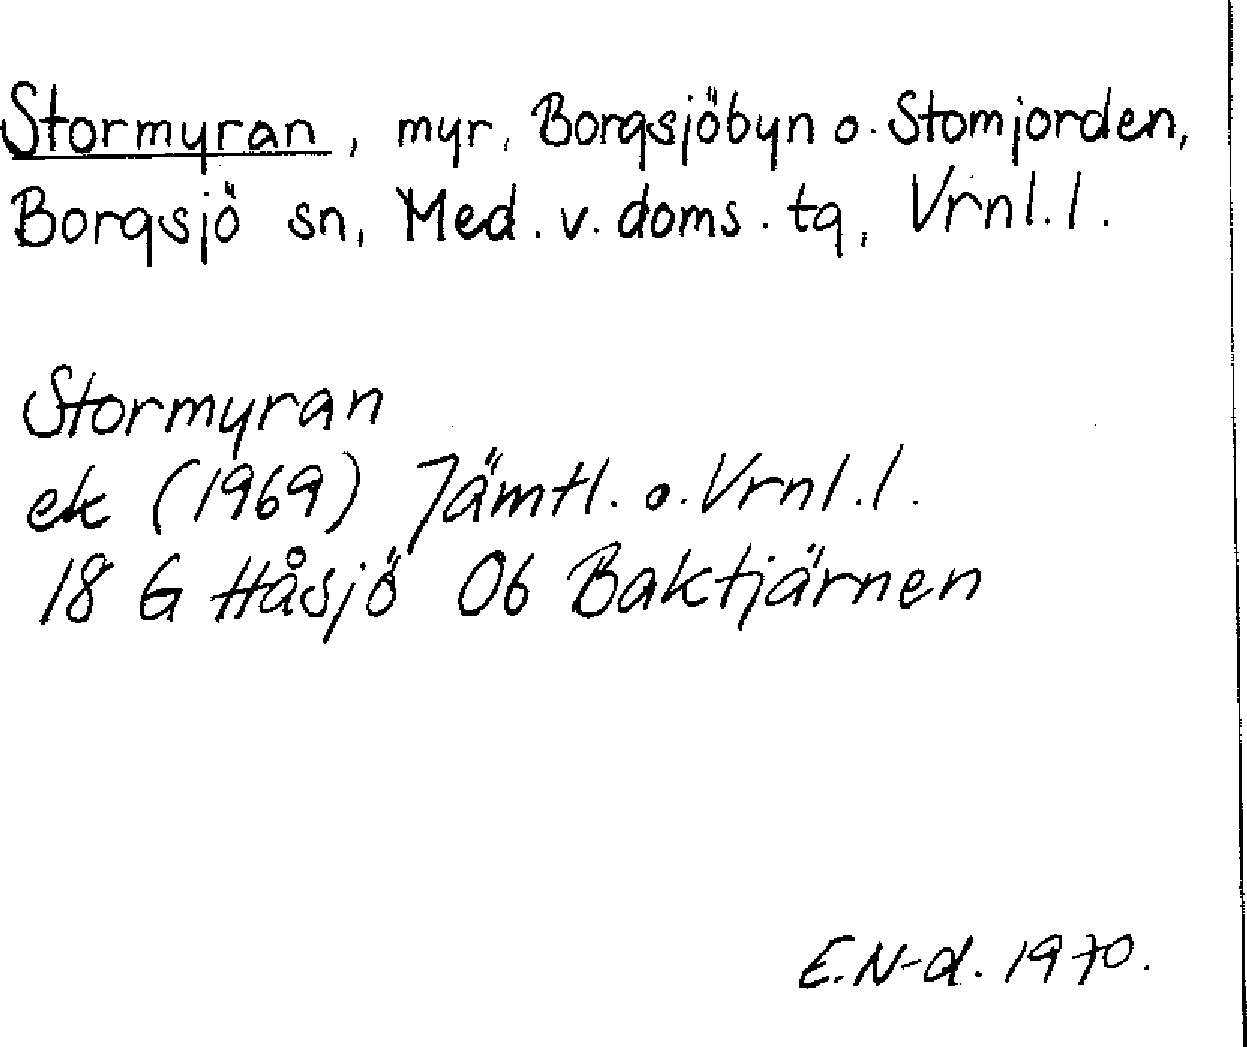 Stormyran, myr, Borgsjöbyn o. Stomjorden,
Borgsjö sn, Med. v. doms. tg, Vrnl. l.
Stormyran
ek (1969) Jämtl. o. Vrnl. l.
18 G Håsjö 06 Baktjärnen
E. N-d. 1970.